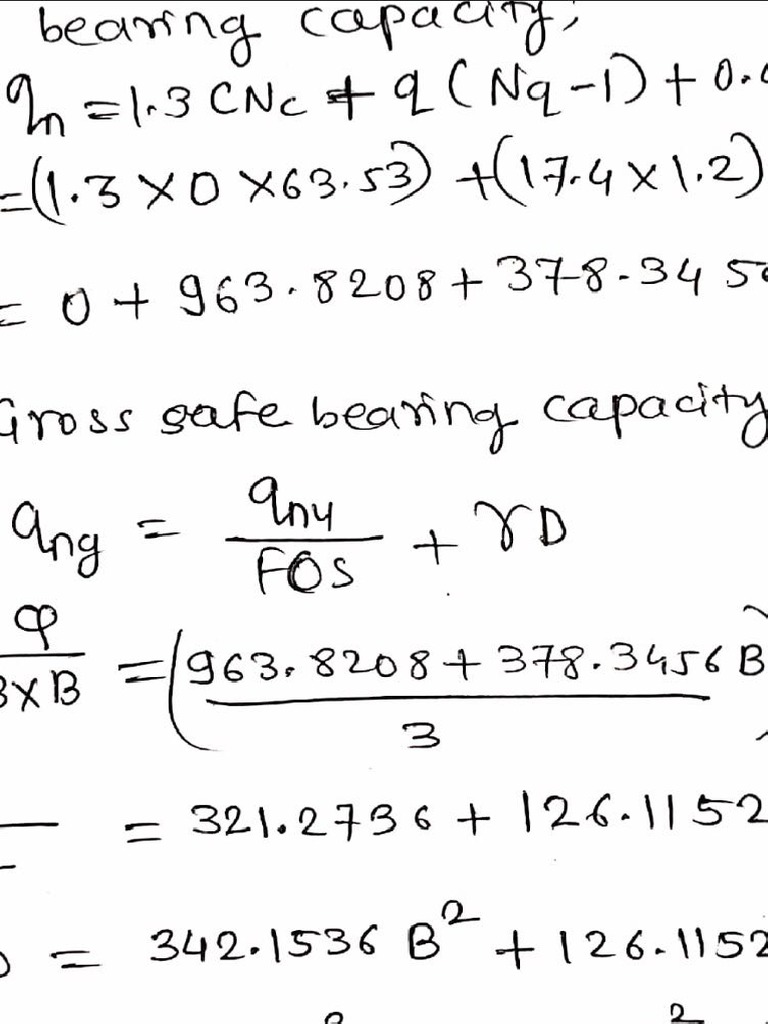 bearing capacity,
qn = 1.3 CNc + q (Nq - 1) + 0.
= (1.3 × 0 × 63.53) + (17.4 × 1.2)
= 0 + 963.8208 + 378.345
Gross safe bearing capacity
qng = qnu / FOS + γD
φ / B×B = (963.8208 + 378.3456 B / 3
= 321.2736 + 126.1152
= 342.1536 B² + 126.1152
2